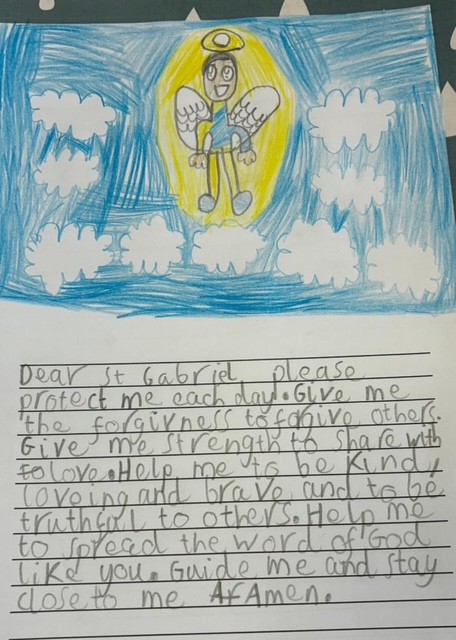 Dear St Gabriel please
protect me each day. Give me
the forgivness to fogive others.
Give me strength to share with
to love. Help me to be kind,
loveing and brave and to be
truthful to others. Help me
to spread the word of God
like you. Guide me and stay
close to me Af Amen.